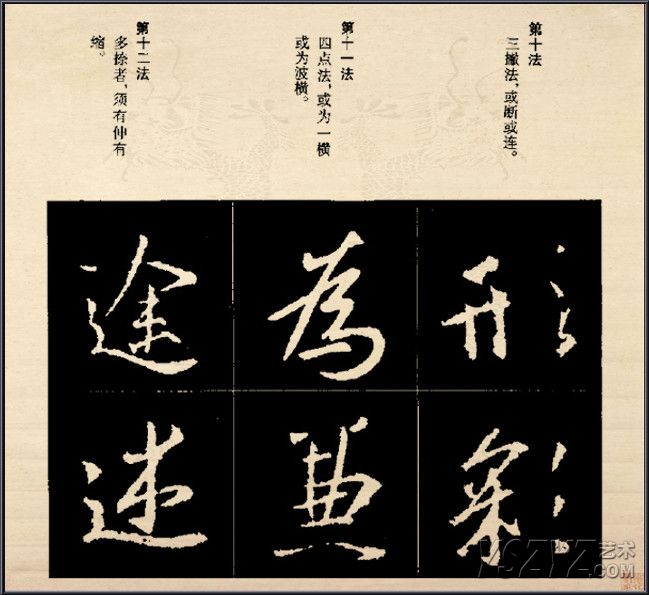 第十法
三撇法，或断或连。
第十一法
四点法，或为一横
或为波横。
第十二法
多捺者，须有伸有
缩。
形
彩
為
途
艺术
.COM